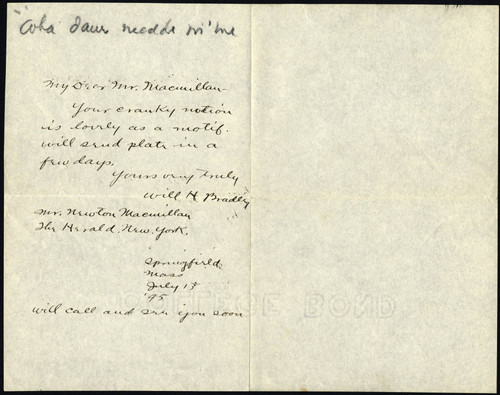 "Wha daur meddle wi' me
My Dear Mr. Macmillan-
Your cranky notion
is lovely as a motif.
will send plate in a
few days.
Yours very truly
Will H Bradley
Mr. Newton Macmillan
The Herald. New York.
Springfield
Mass
July 13
95
will call and see you soon
COLLEGE BOND